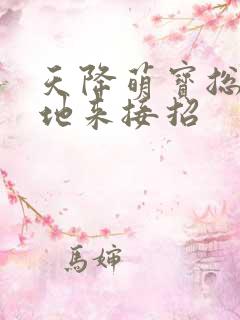 天降萌寶總
地來接招
馬婶